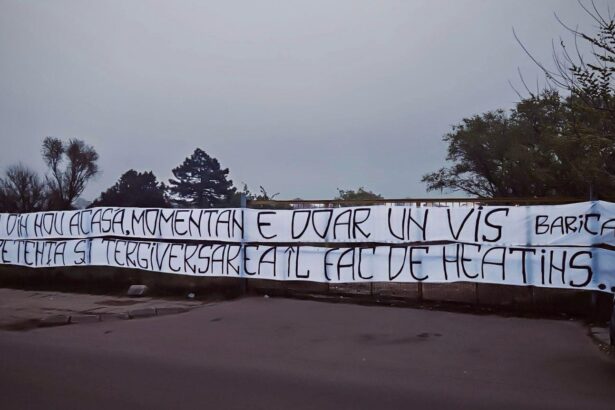 DIN NOU ACASA, MOMENTAN E DOAR UN VIS BARICA
TENTA SI TERGIVERSAREA ÎL FAC DE NEATINS...